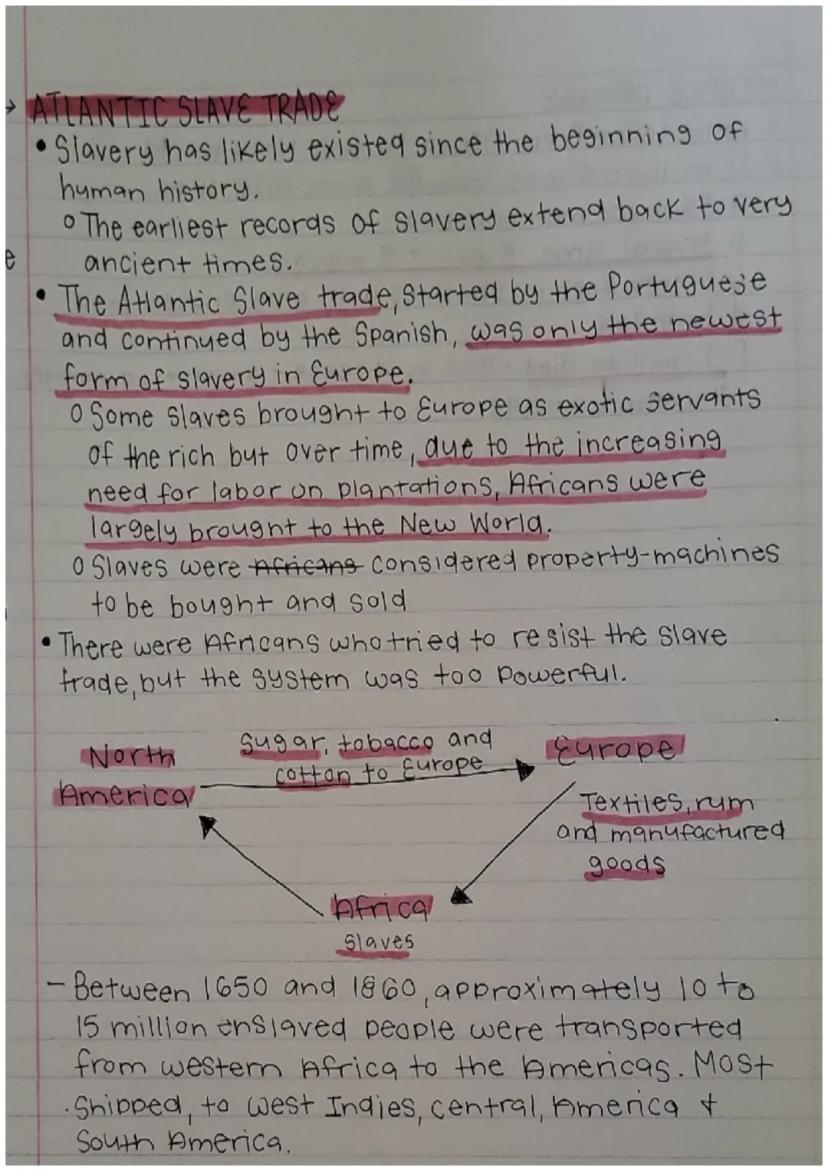 → ATLANTIC SLAVE TRADE
• Slavery has likely existed since the beginning of
human history.
o The earliest records of slavery extend back to very
e
ancient times.
• The Atlantic Slave trade, started by the Portuguese
and continued by the Spanish, was only the newest
form of slavery in Europe.
o Some slaves brought to Europe as exotic servants
of the rich but over time, due to the increasing
need for labor on plantations, Africans were
largely brought to the New World.
o Slaves were Africans considered property-machines
to be bought and sold
• There were Africans who tried to resist the slave
trade, but the system was too powerful.
North
America
Sugar, tobacco and
cotton to Europe
Europe
Textiles, rum
and manufactured
goods
Africa
slaves
- Between 1650 and 1860, approximately 10 to
15 million enslaved people were transported
from western Africa to the Americas. Most
shipped, to west Indies, central, America &
South America.